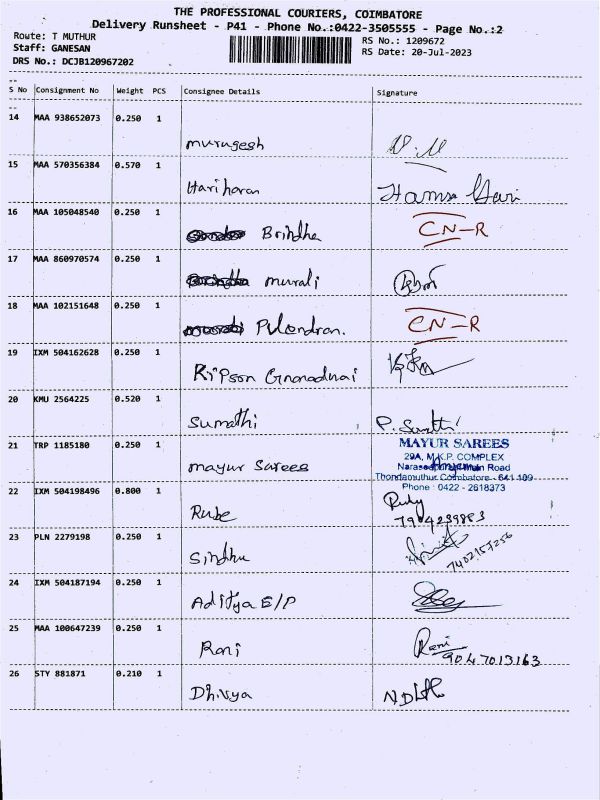 THE PROFESSIONAL COURIERS, COIMBATORE
Delivery Runsheet - P41 - Phone No.:0422-3505555 - Page No.:2
Route: T MUTHUR
Staff: GANESAN
DRS No.: DCJB120967202
RS No.: 1209672
RS Date: 20-Jul-2023
S No Consignment No Weight PCS Consignee Details Signature
14 MAA 938652073 0.250 1 murugesh
15 MAA 570356384 0.570 1 Hariharan
16 MAA 105048540 0.250 1 Brindha CN-R
17 MAA 860970574 0.250 1 murali
18 MAA 102151648 0.250 1 CN-R
19 IXM 504162628 0.250 1 Ripson
20 KMU 2564225 0.520 1 Sumathi P. Sumathi
21 TRP 1185180 0.250 1 mayur Sarees
MAYUR SAREES
29A, M.K.P. COMPLEX
Main Road
Thondamuthur Coimbatore - 641 109
Phone : 0422 - 2618373
22 IXM 504198496 0.800 1 Rube Ruby
7904239853
23 PLN 2279198 0.250 1 Sindhu
7402157256
24 IXM 504187194 0.250 1 Aditya E/P
25 MAA 100647239 0.250 1 Rani Rani
9047013163
26 STY 881871 0.210 1 Dhivya